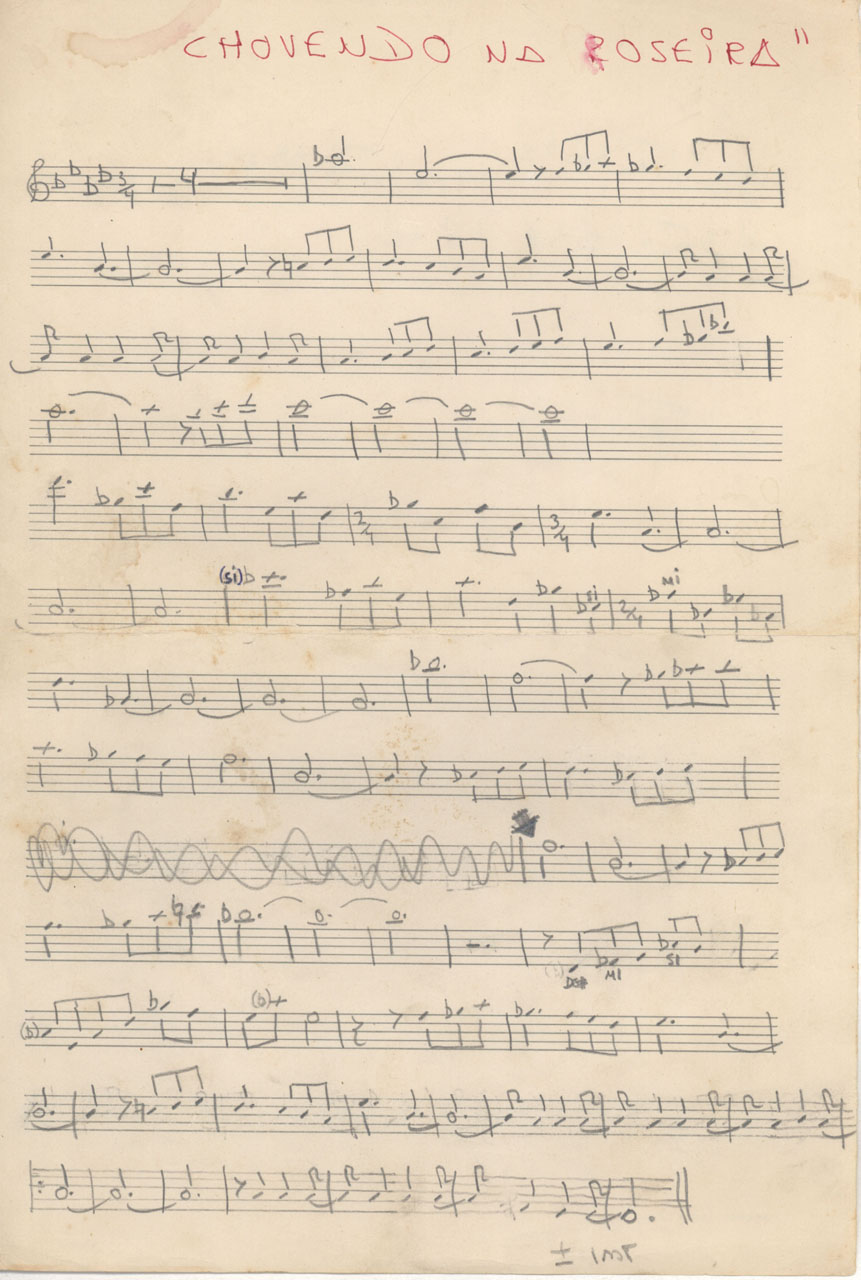 CHOVENDO NA ROSEIRA"
3/4 4
2/4 3/4
(si) si 2/4 Mi
DO# Mi Si
± inst